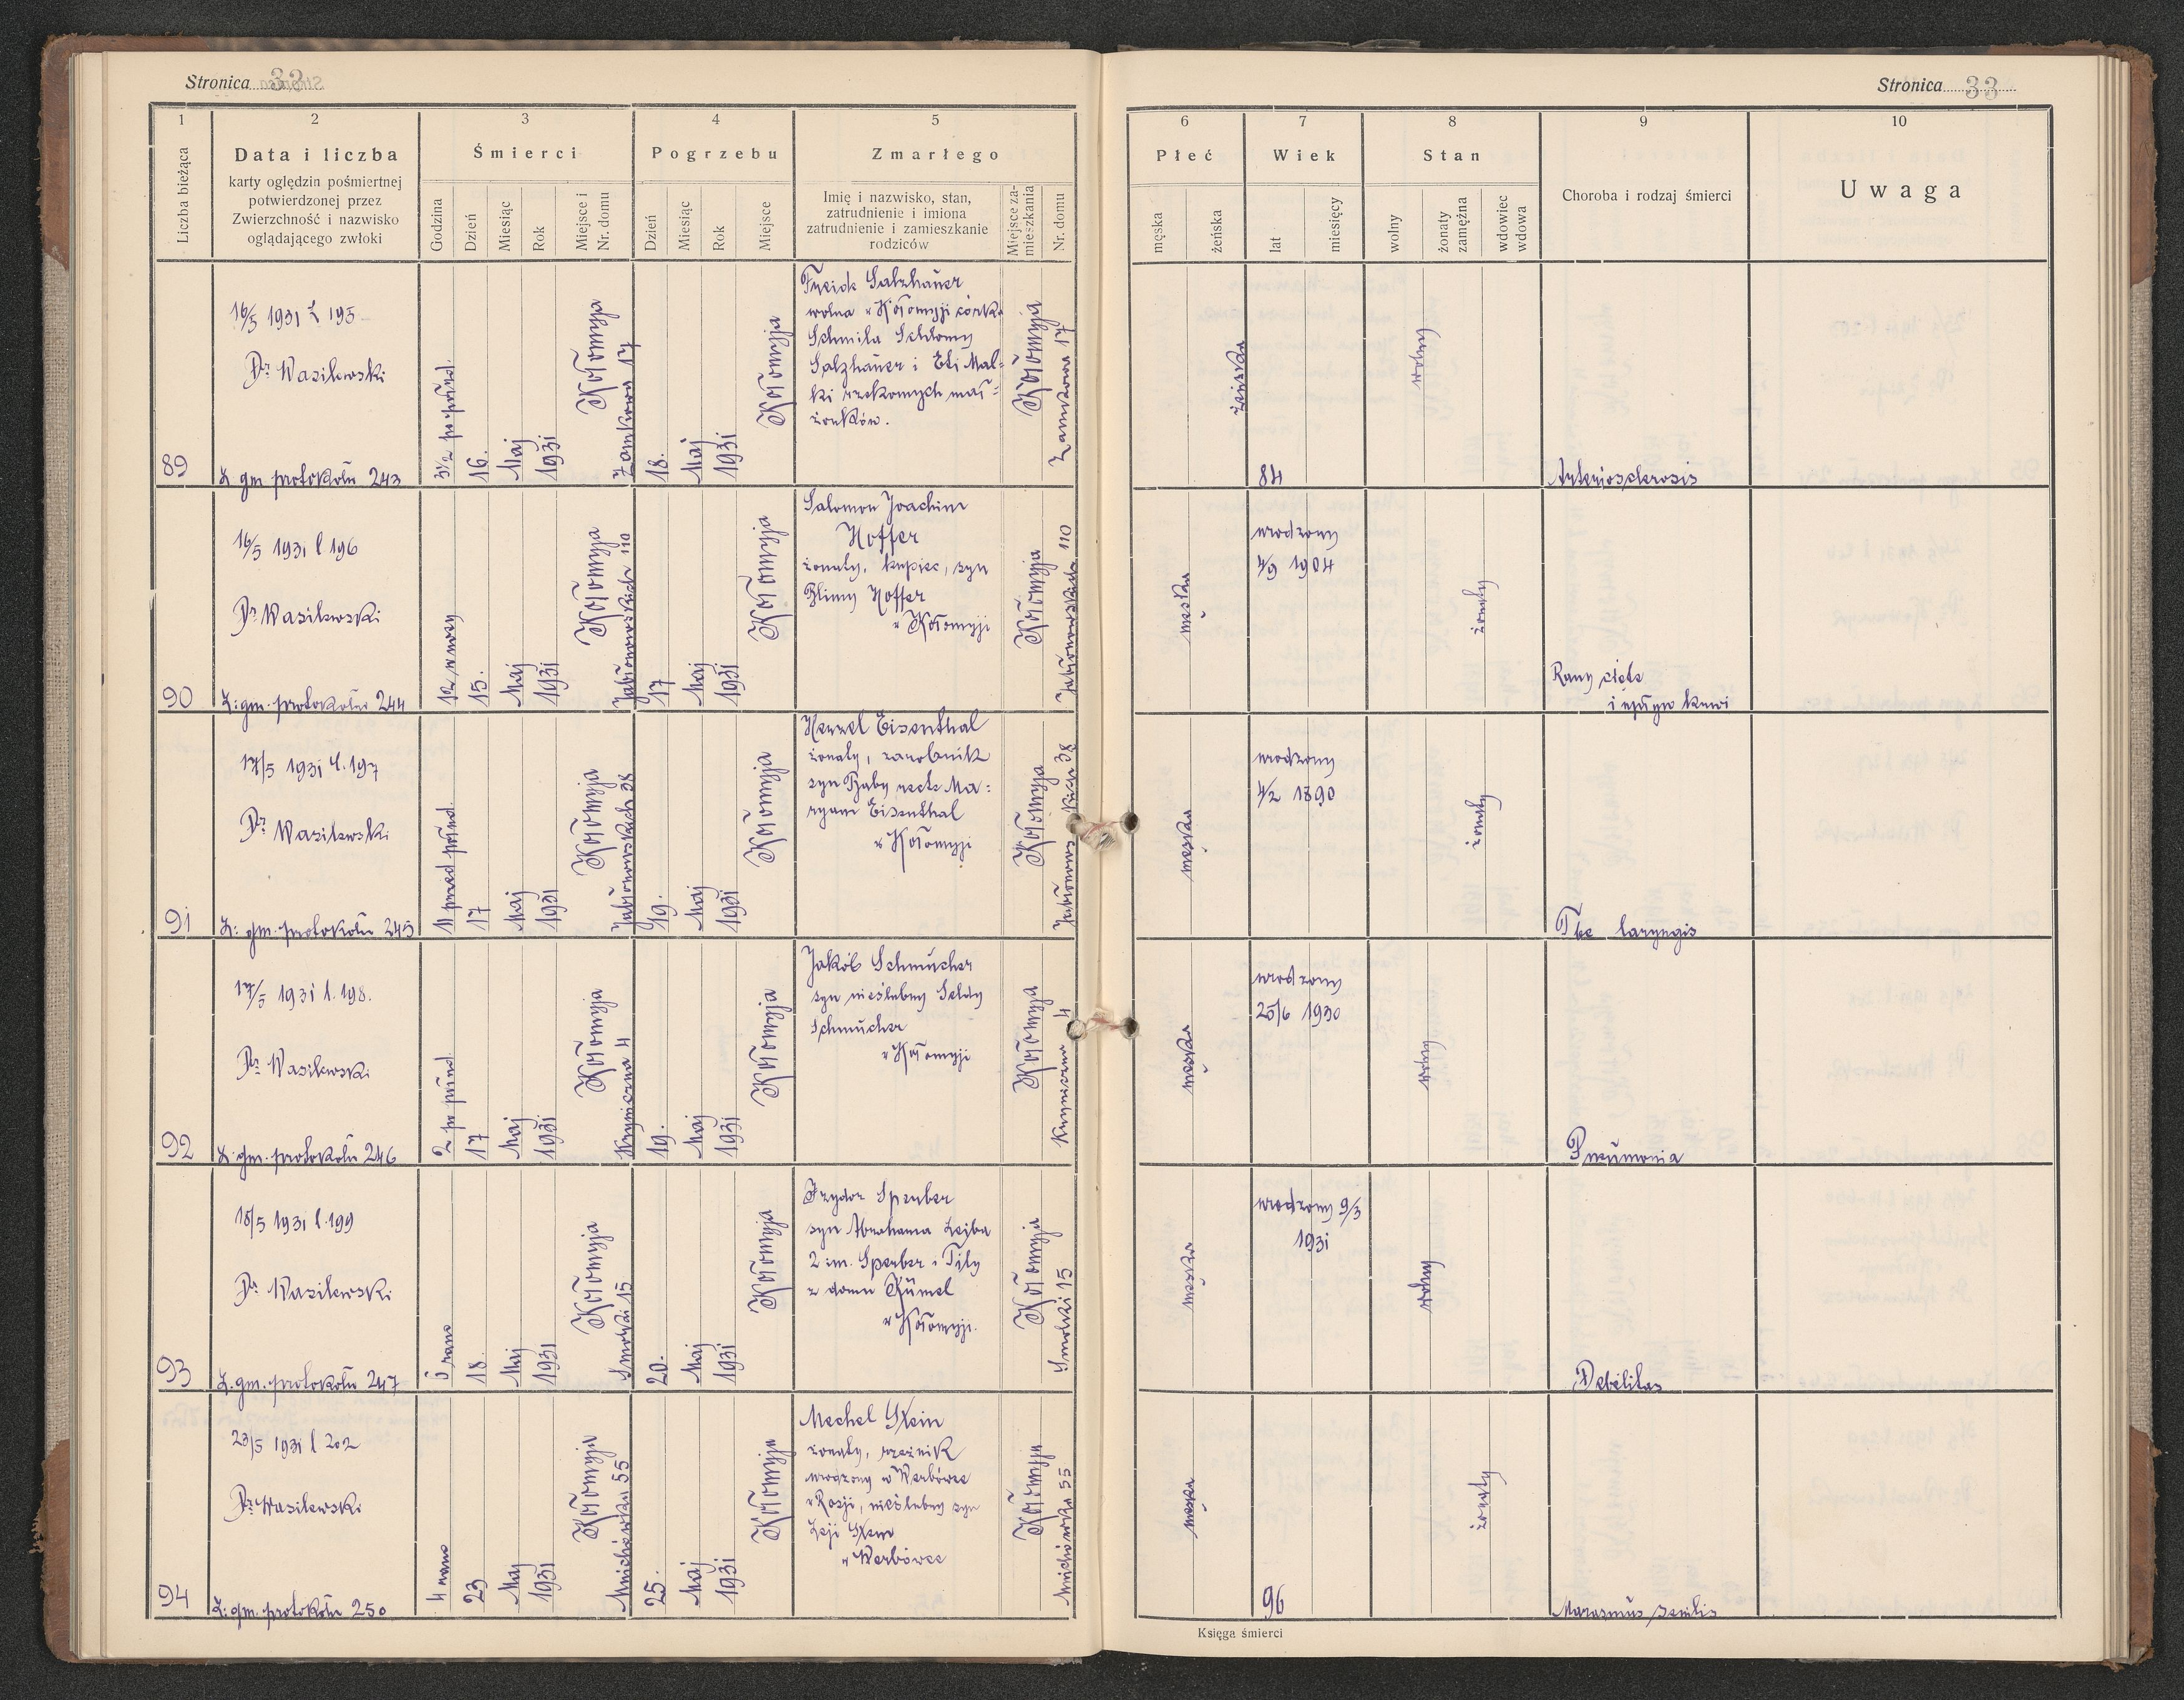 Stronica 33
Stronica 33
1 2 3 4 5 6 7 8 9 10
Liczba bieżąca
Data i liczba
karty oględzin pośmiertnej
potwierdzonej przez
Zwierzchność i nazwisko
oglądającego zwłoki
Śmierci
Godzina
Dzień
Miesiąc
Rok
Miejsce i
Nr. domu
Pogrzebu
Dzień
Miesiąc
Rok
Miejsce
Zmarłego
Imię i nazwisko, stan,
zatrudnienie i imiona
zatrudnienie i zamieszkanie
rodziców
Miejsce za-
mieszkania
Nr. domu
Płeć
męska
żeńska
Wiek
lat
miesięcy
Stan
wolny
żonaty
zamężna
wdowiec
wdowa
Choroba i rodzaj śmierci
Uwaga
89
16/5 1931 L 195
Dr Wasilewski
L gm protokołu 243
3 1/2 po połud.
16.
Maj
1931
Kołomyja
Zamkowa 17
18.
Maj
1931
Kołomyja
Freide Salzhauer
wolna w Kołomyji córka
Schmila Schlomy
Salzhauer i Eti Mal-
ki rzekomych mał=
żonków.
Kołomyja
Zamkowa 17
żeńska
84
wolny
Arteriosclerosis
90
16/5 1931 l 196
Dr Wasilewski
L: gm. protokołu 244
12 w nocy
15.
Maj
1931
Kołomyja
Jabłonowskich 110
17
Maj
1931
Kołomyja
Salomon Joachim
Hoffer
żonaty, kupiec, syn
Blimy Hoffer
w Kołomyji
Kołomyja
Jabłonowskich 110
męska
urodzony
4/9 1904
żonaty
Rany cięte
i upływ krwi
91
17/5 1931 l. 197
Dr Wasilewski
L: gm. protokołu 245
11 przed połud.
17
Maj
1931
Kołomyja
Jabłonowskich 38
19.
Maj
1931
Kołomyja
Herzel Eisenthal
żonaty, zarobnik
syn Baby recte Ma:
ryam Eisenthal
w Kołomyji
Kołomyja
Jabłonowskich 38
męska
urodzony
4/2 1890
żonaty
Tbc laryngis
92
17/5 1931 l. 198.
Dr Wasilewski
L. gm. protokołu 246
2 po połud.
17
Maj
1931
Kołomyja
Kryniczna 4
19.
Maj
1931
Kołomyja
Jakób Schmucher
syn nieślubny Seldy
Schmucher
w Kołomyji
Kołomyja
Kryniczna 4
męska
urodzony
25/6 1930
wolny
Pneumonia
93
18/5 1931 l. 199
Dr Wasilewski
L. gm. protokołu 247
5 rano
18.
Maj
1931
Kołomyja
Smolki 15
20.
Maj
1931
Kołomyja
Izydor Sperber
syn Abrahama Lejba
2 im. Sperber i Tily
z domu Rümel
w Kołomyji.
Kołomyja
Smolki 15
męska
urodzony 9/3
1931
wolny
Debilitas
94
23/5 1931 l 202
Dr Wasilewski
L: gm. protokołu 250
4 rano
23
Maj
1931
Kołomyja
Mnichówka 55
25.
Maj
1931
Kołomyja
Mechel Stein
żonaty, rzeźnik
urodzony w Werbówce
w Rosji, nieślubny syn
Leji Stein
w Werbówce
Kołomyja
Mnichówka 55
męska
96
żonaty
Marasmus senilis
Księga śmierci